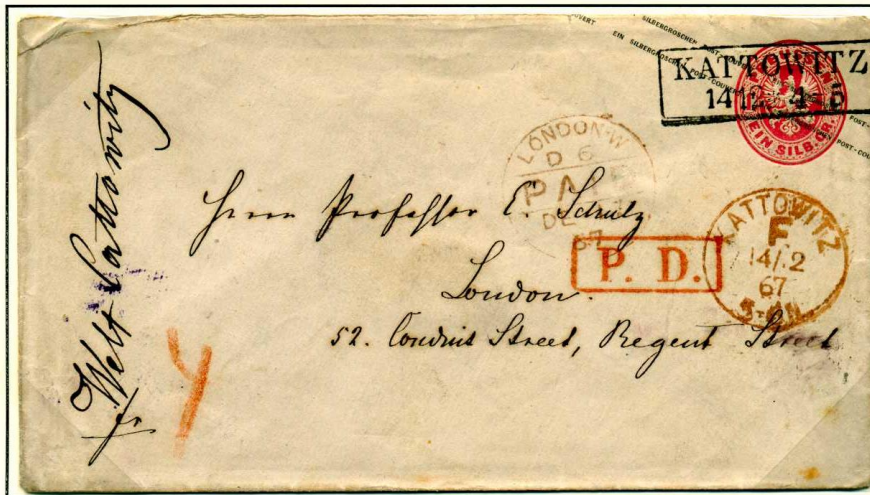 EIN SILBERGROSCHEN POST-COUVERT
KATTOWITZ
14 12 4-5
EIN SILB. GR.
LONDON-W
D 6
PAI
DE
67
KATTOWITZ
F
14/12
67
Herrn Professor E. Schulz
P. D.
London.
52. Conduit Street, Regent Street
Welt Cattowitz
fr.
4